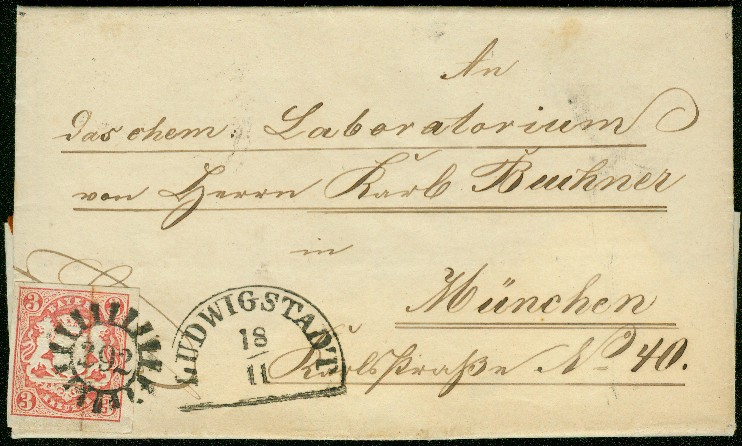 An
das chem. Laboratorium
von Herrn Karl Buchner
in
München
Karlstraße No 40.
LUDWIGSTADT
18
11
3
BAYERN
292
3